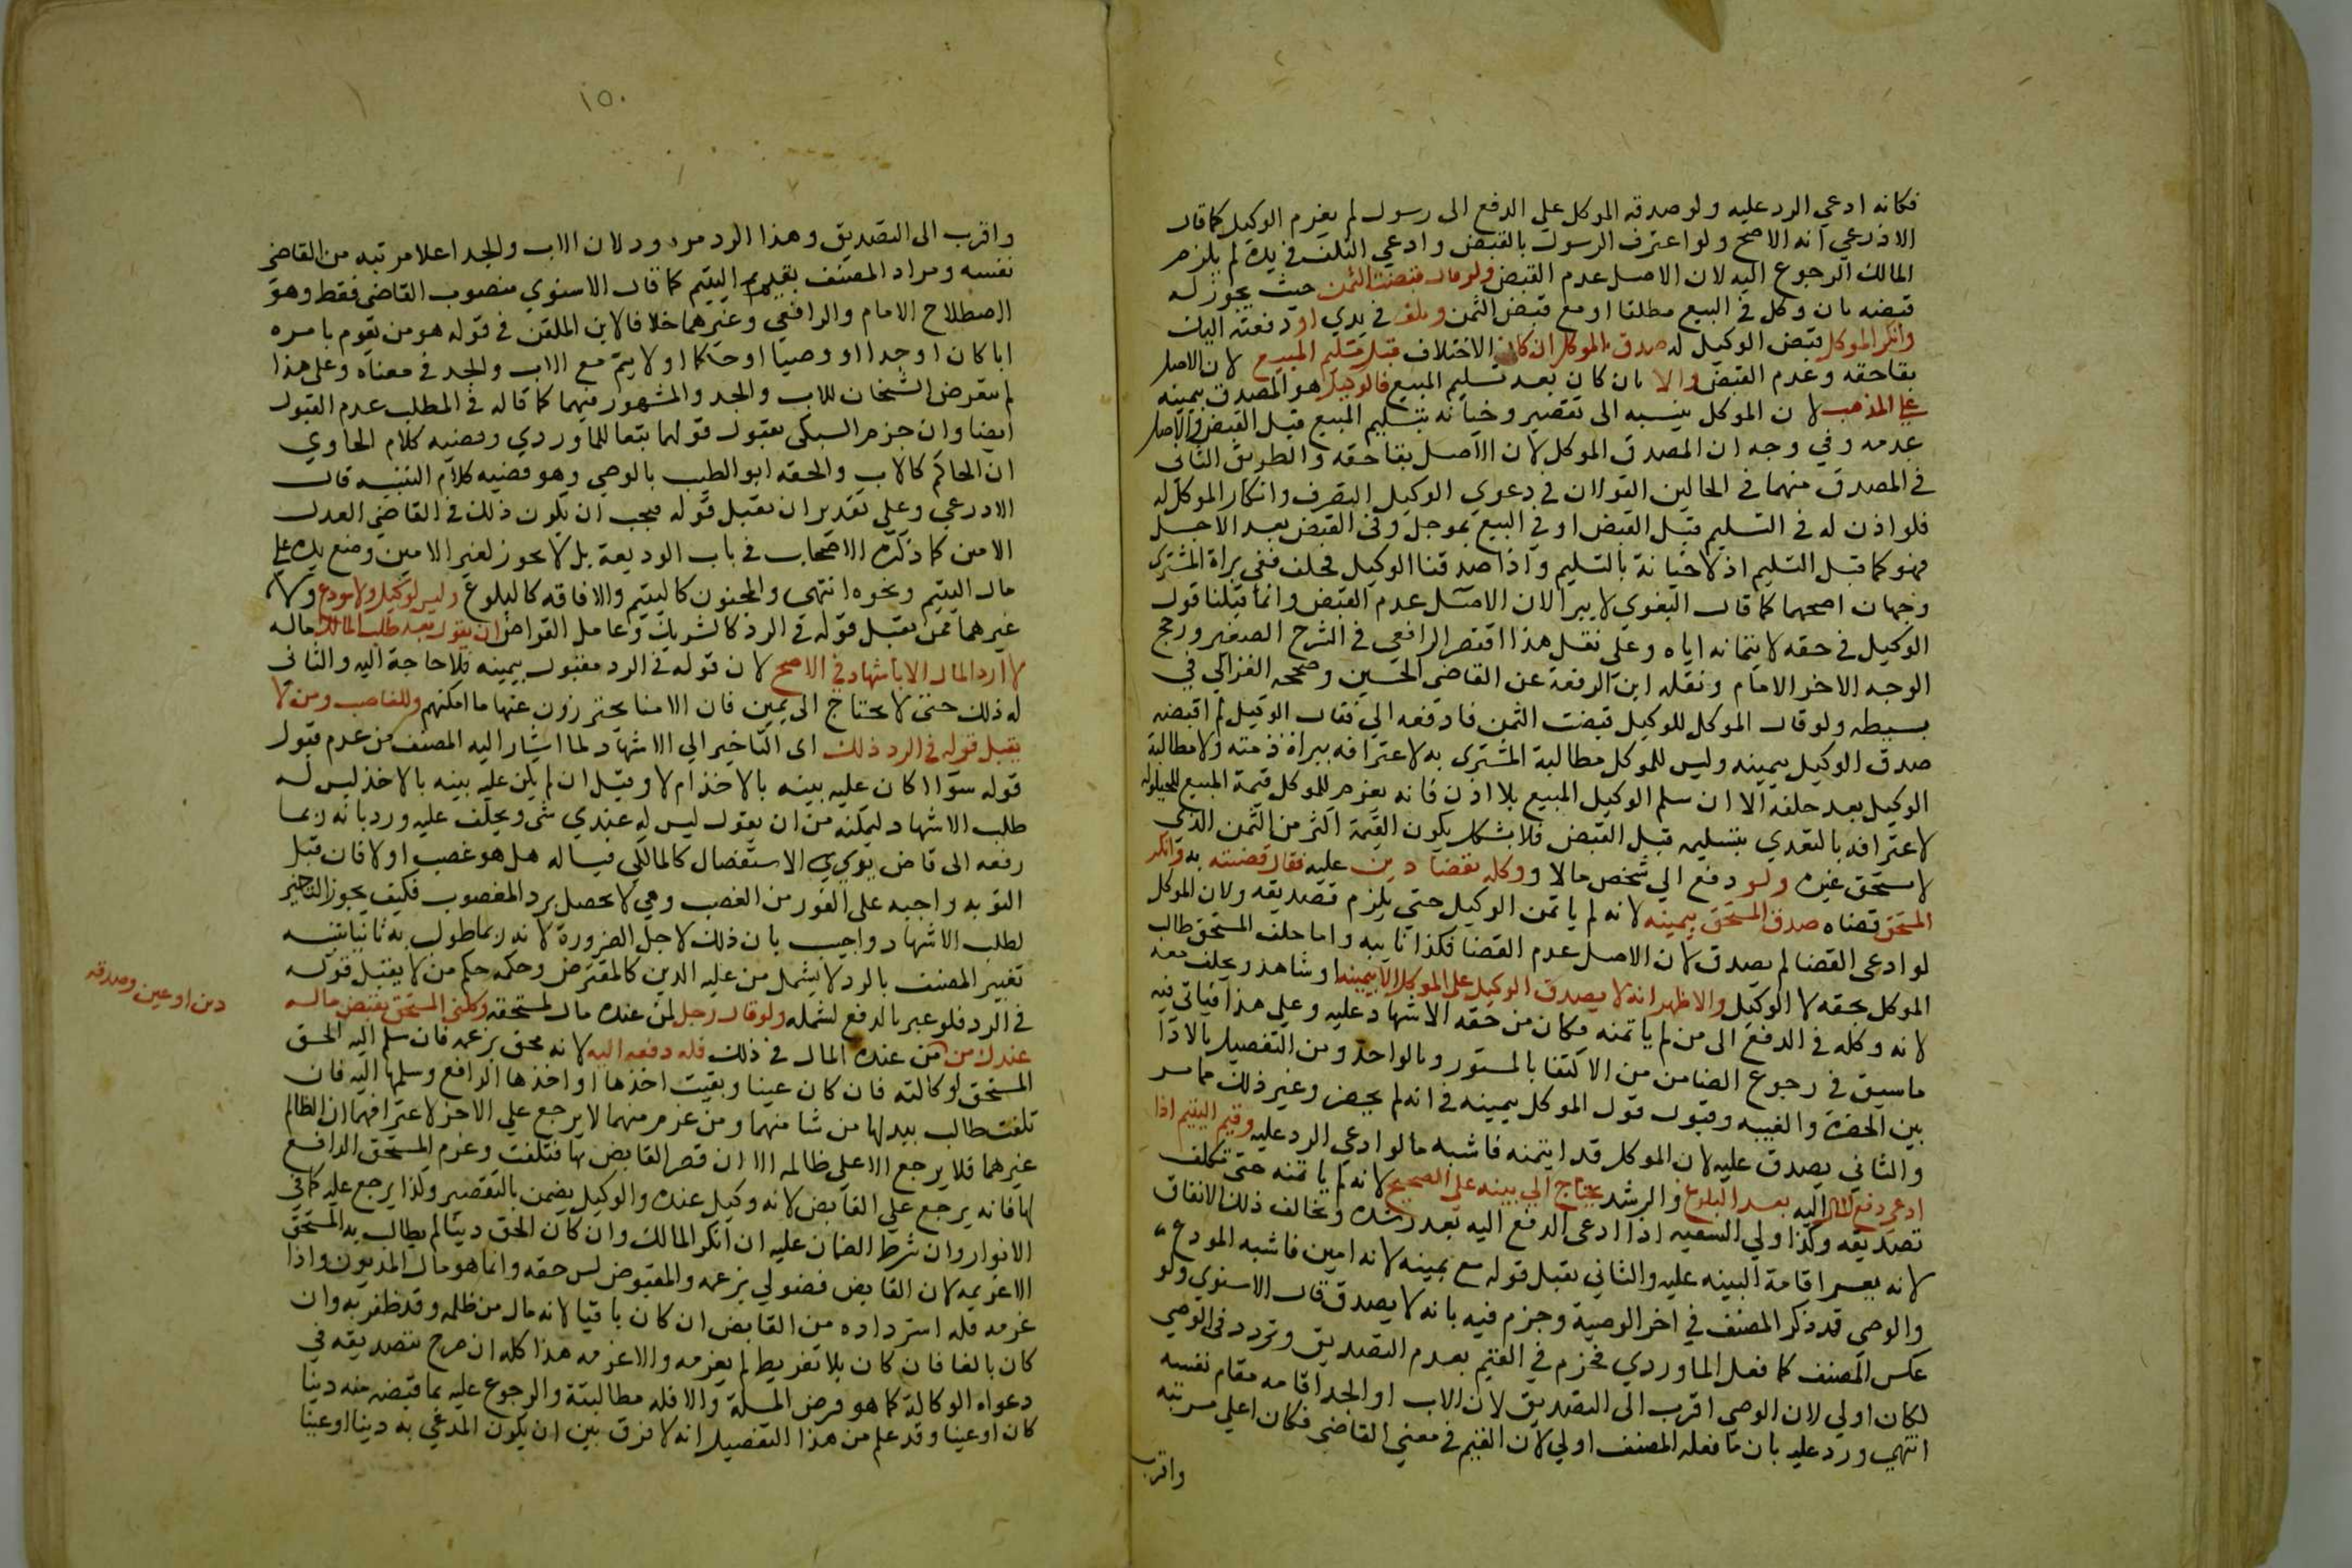 فكانه ادعي الرد عليه ولو صدقه الموكل علي الدفع الى رسول لم يغرم الوكيل كما قال
الاذرعي انه الاصح ولو اعترف الرسول بالقبض وادعي التلف في يده لم يلزم
المالك الرجوع اليه لان الاصل عدم القبض ولو قال قبضت الثمن حيث يجوز له
قبضه بان وكل في البيع مطلقا او مع قبض الثمن وتلف في يدي او دفعته اليك
وانكر الموكل قبض الوكيل له صدق الموكل ان كان الاختلاف قبل تسليم المبيع لان الاصل
بقا حقه وعدم القبض والا بان كان بعد تسليم المبيع فالوكيل هو المصدق بيمينه
على المذهب لان الموكل ينسبه الى تقصير وخيانه بتسليم المبيع قبل القبض والاصل
عدمه وفي وجه ان المصدق الموكل لان الاصل بقا حقه والطريق الثاني
في المصدق منهما في الحالين القولان في دعوي الوكيل التصرف وانكار الموكل له
فلو اذن له في التسليم قبل القبض او في البيع بموجل وفي القبض بعد الاجل
فهو كما قبل التسليم اذ لا خيانة بالتسليم واذا صدقنا الوكيل فحلف ففي براة المشتري
وجهان اصحهما كما قال البغوي لا يبرا لان الاصل عدم القبض وانما قبلنا قول
الوكيل في حقه لائتمانه اياه وعلى نقل هذا اقتصر الرافعي في الشرح الصغير ورجح
الوجه الاخر الامام ونقله ابن الرفعة عن القاضي الحسين وصححه الغزالي في
بسيطه ولو قال الموكل للوكيل قبضت الثمن فادفعه الي فقال الوكيل لم اقبضه
صدق الوكيل بيمينه وليس للموكل مطالبة المشتري به لاعترافه ببراة ذمته ولا مطالبة
الوكيل بعد حلفه الا ان سلم الوكيل المبيع بلا اذن فانه يغرم للموكل قيمة المبيع للحيلولة
لاعترافه بالتعدي بتسليمه قبل القبض فلا يشكل بكون القيمة اكثر من الثمن الذي
لا يستحق غيره ولو دفع الي شخص مالا ووكله بقضا دين عليه فقال قضيته به وانكر
المستحق قضاه صدق المستحق بيمينه لانه لم ياتمن الوكيل حتي يلزم تصديقه ولان الموكل
لو ادعى القضا لم يصدق لان الاصل عدم القضا فكذا نايبه واما حلف المستحق طالب
الموكل بحقه لا الوكيل والاظهر انه لا يصدق الوكيل على الموكل الا ببينه او شاهد ويحلف معه
لانه وكله في الدفع الى من لم ياتمنه فكان من حقه الاشهاد عليه وعلي هذا فياتي فيه
ما سبق في رجوع الضامن من الاكتفا بالمستور وبالواحد ومن التفصيل بالادا
بين الحضرة والغيبه وقبول قول الموكل بيمينه في انه لم يحضر وغير ذلك مما مر
والثاني يصدق عليه لان الموكل قد ايتمنه فاشبه ما لو ادعي الرد عليه وقيم اليتيم اذا
ادعي دفع المال اليه بعد البلوغ والرشد يحتاج الي بينه علي الصحيح لانه لم ياتمنه حتي يكلف
تصديقه وكذا ولي السفيه اذا ادعى الدفع اليه بعد رشده ويخالف ذلك الانفاق
لانه يعسر اقامة البينه عليه والثاني يقبل قوله مع يمينه لانه امين فاشبه المودع
والوصي قد ذكر المصنف في اخر الوصية وجزم فيه بانه لا يصدق قال الاسنوي ولو
عكس المصنف كما فعل الماوردي فجزم في القيم بعدم التصديق وتردد في الوصي
لكان اولي لان الوصي اقرب الى التصديق لان الاب او الجد اقامه مقام نفسه
انتهي ورد عليه بان ما فعله المصنف اولي لان القيم في معني القاضي فكان اعلي مرتبه
واقرب
١٥٠
واقرب الى التصديق وهذا الرد مردود لان الاب والجد اعلا مرتبه من القاضي
نفسه ومراد المصنف بقيم اليتيم كما قال الاسنوي منصوب القاضي فقط وهو
اصطلاح الامام والرافعي وغيرهما خلافا لابن الملقن في قوله هو من يقوم بامره
ابا كان او جدا او وصيا او حاكما او لا يتم مع الاب والجد في معناه وعلى هذا
لم يتعرض الشيخان للاب والجد والمشهور فيهما كما قاله في المطلب عدم القبول
ايضا وان جزم السبكي بقبول قولهما تبعا للماوردي وقضيه كلام الحاوي
ان الحاكم كالاب والحقه ابو الطيب بالوصي وهو قضيه كلام التنبيه قال
الاذرعي وعلي تقدير ان يقبل قوله فيجب ان يكون ذلك في القاضي العدل
الامين كما ذكره الاصحاب في باب الوديعة بل لا يجوز لغير الامين وضع يده علي
مال اليتيم ونحوه انتهى والمجنون كاليتيم والافاقه كالبلوغ وليس لوكيل ولا مودع ولا
غيرهما ممن يقبل قوله في الرد كالشريك وعامل القراض ان يقول بعد طلب المالك ماله
لا ارد المال الا باشهاد في الاصح لان قوله في الرد مقبول بيمينه فلا حاجة اليه والثاني
له ذلك حتى لا يحتاج الى يمين فان الامنا يحترزون عنها ما امكنهم وللغاصب ومن لا
يقبل قوله في الرد ذلك اى التاخير الي الاشهاد لما اشار اليه المصنف من عدم قبول
قوله سوا اكان عليه بينه بالاخذ ام لا وقيل ان لم يكن عليه بينه بالاخذ ليس له
طلب الاشهاد لتمكنه من ان يقول ليس له عندي شي ويحلف عليه ورد بانه ربما
رفعه الى قاض يري الاستفصال كالمالكي فيساله هل هو غصب او لا فان قيل
التوبه واجبه على الفور من الغصب وهي لا تحصل برد المغصوب فكيف يجوز التاخير
لطلب الاشهاد واجيب بان ذلك لاجل الضرورة لانه ربما طولب به ثانيا تنبيه
تعبير المصنف بالرد لا يشمل من عليه الدين كالمقترض وحكمه حكم من لا يقبل قوله
في الرد فلو عبر بالدفع لشمله ولو قال رجل لمن عنده مال لمستحقه وكلني المستحق بقبض ماله
دين او عين وصدقه
عندك من من عنده المال في ذلك فله دفعه اليه لانه محق بزعمه فان سلم اليه الحق
المستحق لوكالته فان كان عينا وبقيت اخذها او اخذها الدافع وسلمها اليه فان
تلفت طالب ببدلها من شا منهما ومن غرم منهما لا يرجع علي الاخر لاعترافهما ان الظالم
غيرهما فلا يرجع الا على ظالمه الا ان قصر القابض بها فتلفت وغرم المستحق الدافع
لها فانه يرجع علي القابض لانه وكيل عنده والوكيل يضمن بالتقصير وكذا يرجع عليه كما في
الانوار وان شرط الضمان عليه ان انكر المالك وان كان الحق دينا لم يطالب به المستحق
الا غريمه لان القابض فضولي بزعمه والمقبوض ليس حقه وانما هو مال المديون واذا
غرمه فله استرداده من القابض ان كان باقيا لانه مال من ظلمه وقد ظفر به وان
كان تالفا فان كان بلا تفريط لم يغرمه والا غرمه هذا كله ان صرح بتصديقه في
دعواه الوكالة كما هو فرض المسلة والا فله مطالبتة والرجوع عليه بما قبضه منه دينا
كان او عينا وقد علم من هذا التفصيل انه لا فرق بين ان يكون المدعي به دينا او عينا